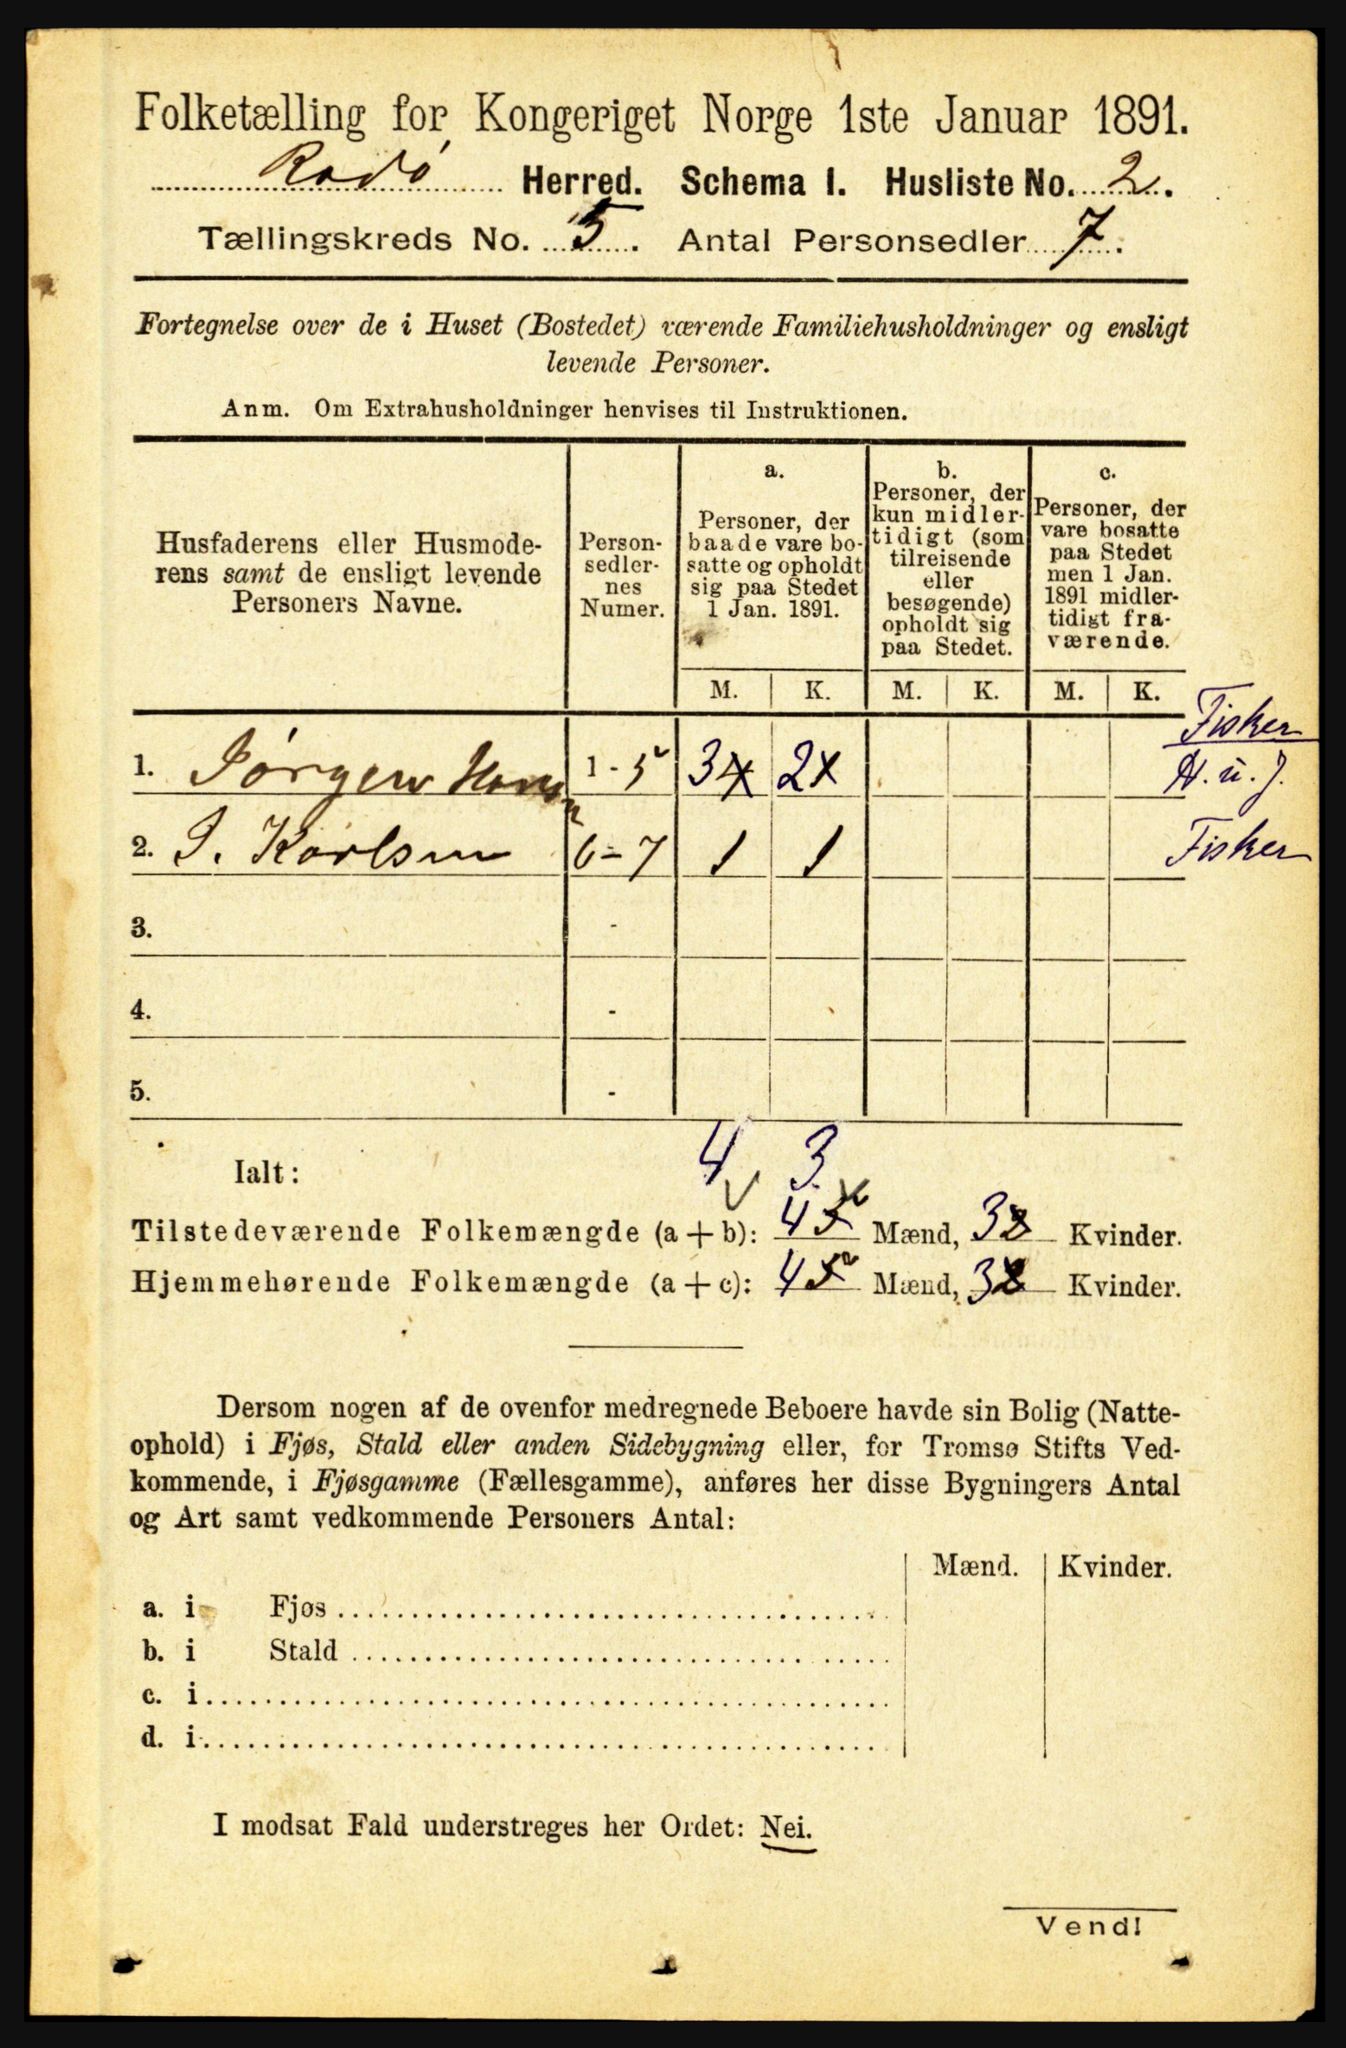 Folketælling for Kongeriget Norge 1ste Januar 1891.
Rodø Herred. Schema I. Husliste No. 2.
Tællingskreds No. 5. Antal Personsedler 7.
Fortegnelse over de i Huset (Bostedet) værende Familiehusholdninger og ensligt
levende Personer.
Anm. Om Extrahusholdninger henvises til Instruktionen.
Husfaderens eller Husmode-
rens samt de ensligt levende
Personers Navne.
Person-
sedler-
nes
Numer.
a.
Personer, der
baade vare bo-
satte og opholdt
sig paa Stedet
1 Jan. 1891.
b.
Personer, der
kun midler-
tidigt (som
tilreisende
eller
besøgende)
opholdt sig
paa Stedet.
c.
Personer, der
vare bosatte
paa Stedet
men 1 Jan.
1891 midler-
tidigt fra-
værende.
M. K. M. K. M. K.
Fisker
1. Jørgen Hansen 1 - 5 3 4 2 H. u. J.
2. J. Karlsen 6 - 7 1 1 Fisker
3. -
4. -
5. -
Ialt: 4 3
Tilstedeværende Folkemængde (a + b): 4 5 Mænd, 3 2 Kvinder.
Hjemmehørende Folkemængde (a + c): 4 5 Mænd, 3 2 Kvinder.
Dersom nogen af de ovenfor medregnede Beboere havde sin Bolig (Natte-
ophold) i Fjøs, Stald eller anden Sidebygning eller, for Tromsø Stifts Ved-
kommende, i Fjøsgamme (Fællesgamme), anføres her disse Bygningers Antal
og Art samt vedkommende Personers Antal:
Mænd. Kvinder.
a. i Fjøs
b. i Stald
c. i
d. i
I modsat Fald understreges her Ordet: Nei.
Vend!